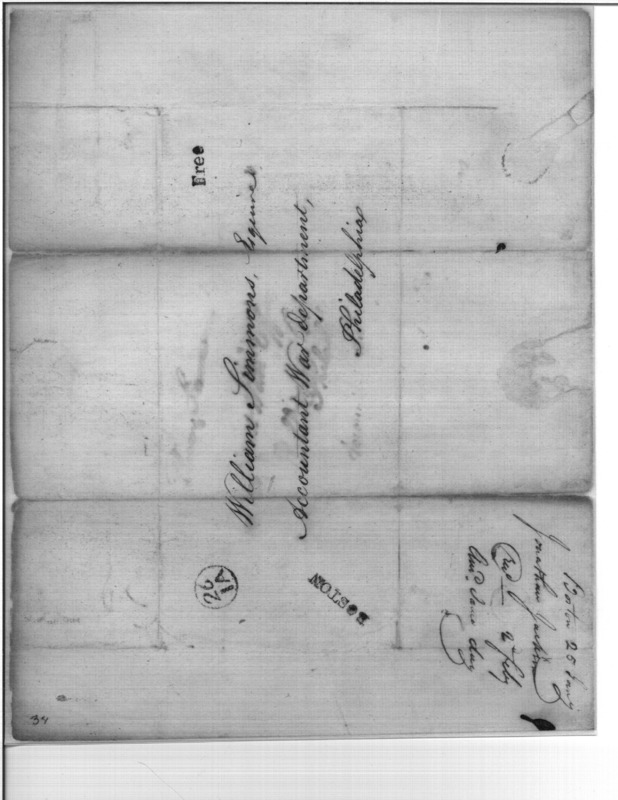 Free
William Simmons, Esquire
Accountant War department,
Philadelphia
26
IA
BOSTON
Boston 25 Jany
Jonathan Jackson
Recd 2 Feby
Ansd Same day
34